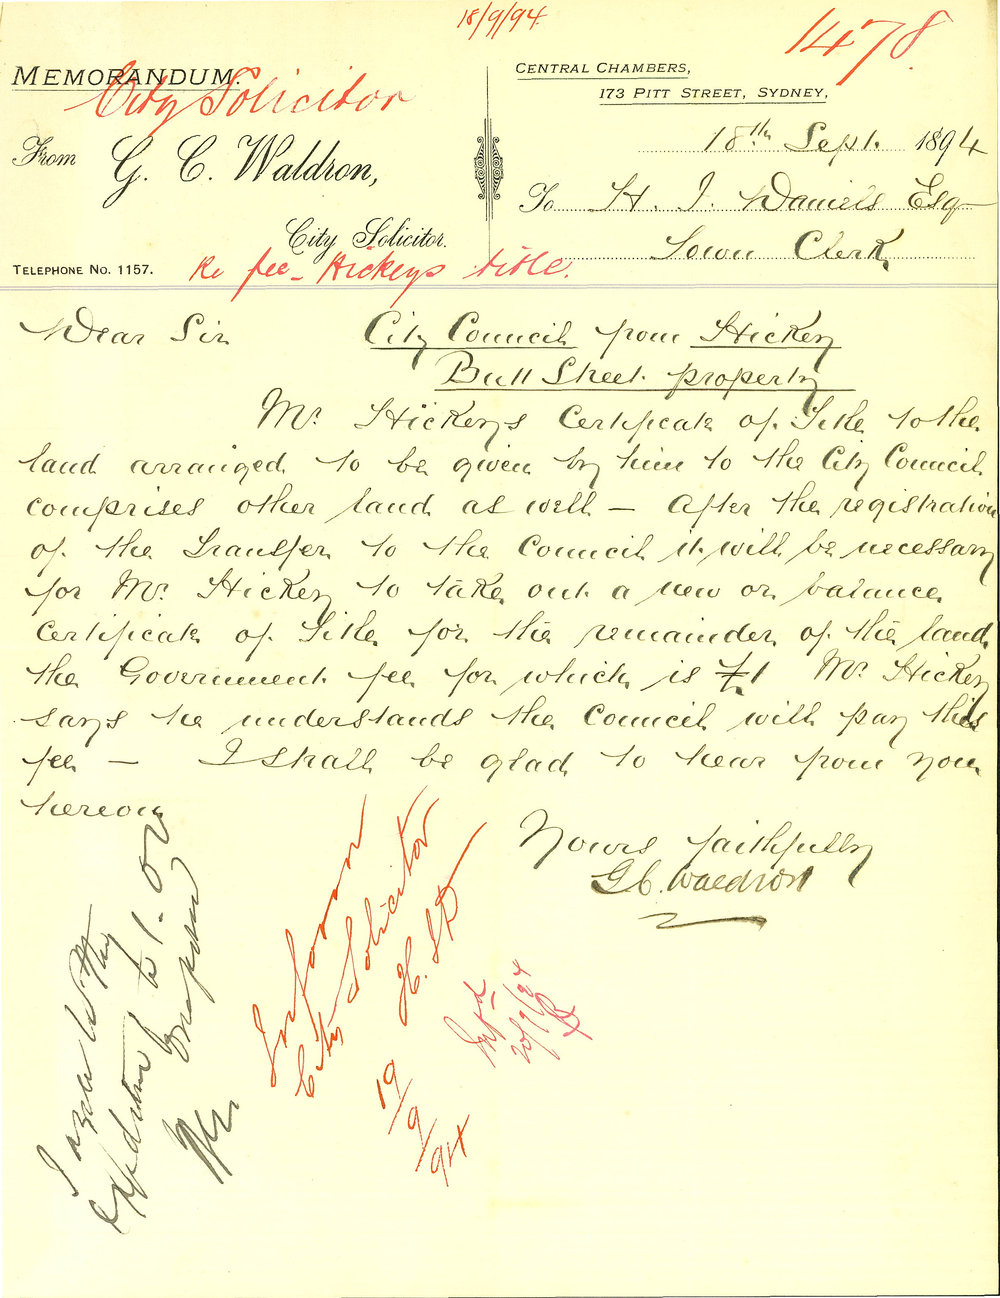 18/9/94
1478
MEMORANDUM.
City Solicitor
CENTRAL CHAMBERS,
173 PITT STREET, SYDNEY,
18th Sept. 1894
From G. C. Waldron,
City Solicitor.
To H. J. Daniels Esq
Town Clerk
TELEPHONE No. 1157.
Re fee - Hickeys title.
Dear Sir
City Council from Hickey
Bull Street property
Mr. Hickeys Certificate of Title to the
land arranged to be given by him to the City Council
comprises other land as well — After the registration
of the Transfer to the Council it will be necessary
for Mr. Hickey to take out a new or balance
Certificate of Title for the remainder of the land
the Government fee for which is £1 Mr. Hickey
says he understands the Council will pay this
fee — I shall be glad to hear from you
hereon
Yours faithfully
G C. Waldron
to 1.0.0
Inform
City Solicitor
19/9/94
Infd
20/9/94